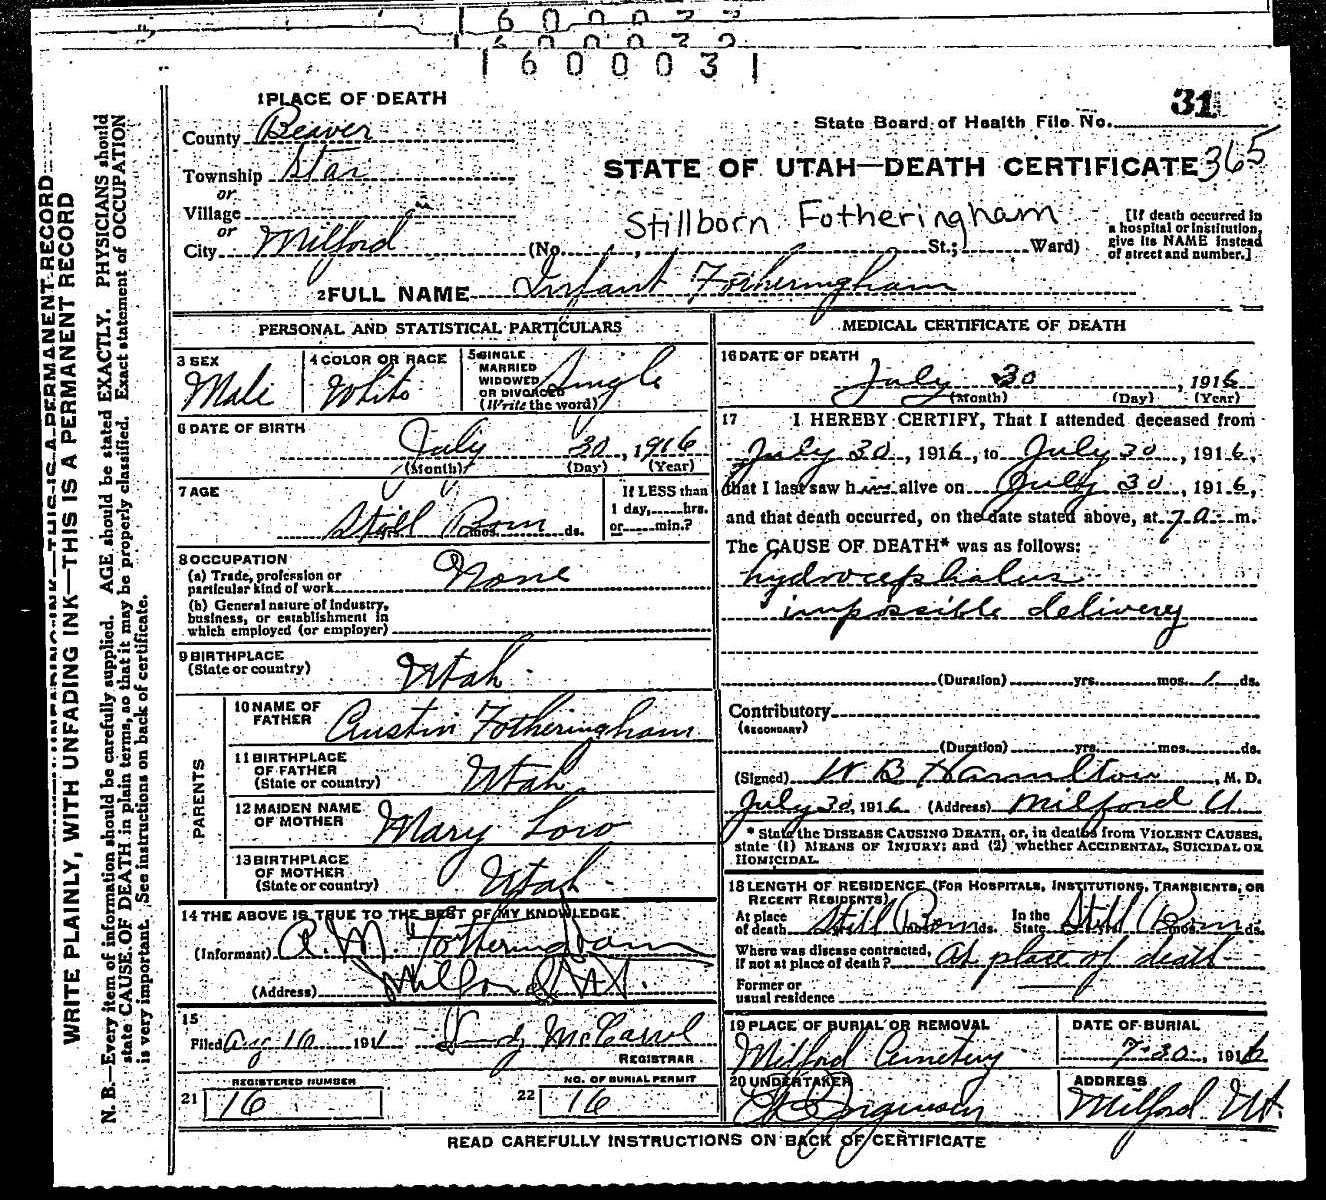 160031
1 PLACE OF DEATH
County Beaver
Township Star
or
Village
or
City Milford (No. St.; Ward)
State Board of Health File No. 31
STATE OF UTAH—DEATH CERTIFICATE 365
Stillborn Fotheringham
[If death occurred in a hospital or institution, give its NAME instead of street and number.]
2 FULL NAME Infant Fotheringham
PERSONAL AND STATISTICAL PARTICULARS
3 SEX Male
4 COLOR OR RACE White
5 SINGLE MARRIED WIDOWED OR DIVORCED (Write the word) Single
6 DATE OF BIRTH July 30, 1916
(Month) (Day) (Year)
7 AGE Still Born yrs. mos. ds.
If LESS than 1 day, hrs. or min.?
8 OCCUPATION None
(a) Trade, profession or particular kind of work
(b) General nature of Industry, business, or establishment in which employed (or employer)
9 BIRTHPLACE (State or country) Utah
PARENTS
10 NAME OF FATHER Austin Fotheringham
11 BIRTHPLACE OF FATHER (State or country) Utah
12 MAIDEN NAME OF MOTHER Mary Low
13 BIRTHPLACE OF MOTHER (State or country) Utah
14 THE ABOVE IS TRUE TO THE BEST OF MY KNOWLEDGE
(Informant) Fotheringham
(Address) Milford
15
Filed Aug 16 191
REGISTRAR
21 REGISTERED NUMBER 16
22 NO. OF BURIAL PERMIT 16
MEDICAL CERTIFICATE OF DEATH
16 DATE OF DEATH
July 30, 1916
(Month) (Day) (Year)
17 I HEREBY CERTIFY, That I attended deceased from
July 30, 1916, to July 30, 1916,
that I last saw him alive on July 30, 1916,
and that death occurred, on the date stated above, at 7 a. m.
The CAUSE OF DEATH* was as follows:
hydrocephalus
impossible delivery
(Duration) yrs. mos. 1 ds.
Contributory
(SECONDARY)
(Duration) yrs. mos. ds.
(Signed) W B Hamilton, M. D.
July 30, 1916 (Address) Milford U.
* State the DISEASE CAUSING DEATH, or, in deaths from VIOLENT CAUSES,
state (1) MEANS OF INJURY; and (2) whether ACCIDENTAL, SUICIDAL OR
HOMICIDAL.
18 LENGTH OF RESIDENCE (FOR HOSPITALS, INSTITUTIONS, TRANSIENTS, OR
RECENT RESIDENTS)
At place of death Still Born ds. In the State Still Born ds.
Where was disease contracted, if not at place of death? At place of death
Former or usual residence
19 PLACE OF BURIAL OR REMOVAL
Milford Cemetery
DATE OF BURIAL
7-30, 1916
20 UNDERTAKER
Jorgensen
ADDRESS
Milford Ut.
READ CAREFULLY INSTRUCTIONS ON BACK OF CERTIFICATE
WRITE PLAINLY, WITH UNFADING INK—THIS IS A PERMANENT RECORD
N. B.—Every item of information should be carefully supplied. AGE should be stated EXACTLY. PHYSICIANS should
state CAUSE OF DEATH in plain terms, so that it may be properly classified. Exact statement of OCCUPATION
is very important. See instructions on back of certificate.